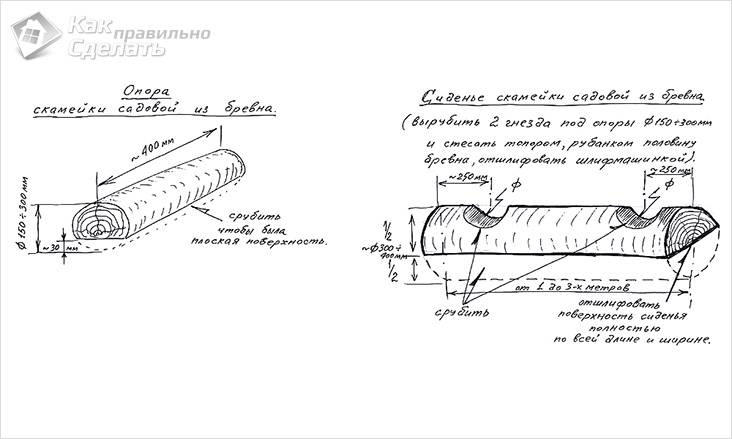 Как правильно
Сделать
Опора
скамейки садовой из бревна.
~ 400 мм
Ф 150 ÷ 300 мм
~30 мм
срубить
чтобы была
плоская поверхность.
Сиденье скамейки садовой из бревна
(вырубить 2 гнезда под опоры Ф 150÷300мм
и стесать топором, рубанком половину
бревна, отшлифовать шлифмашинкой).
~250 мм
~250 мм
Ф
Ф
1/2
~Ф300÷
400мм
1/2
от 1 до 3-х метров
срубить
отшлифовать
поверхность сиденья
полностью
по всей длине и ширине.